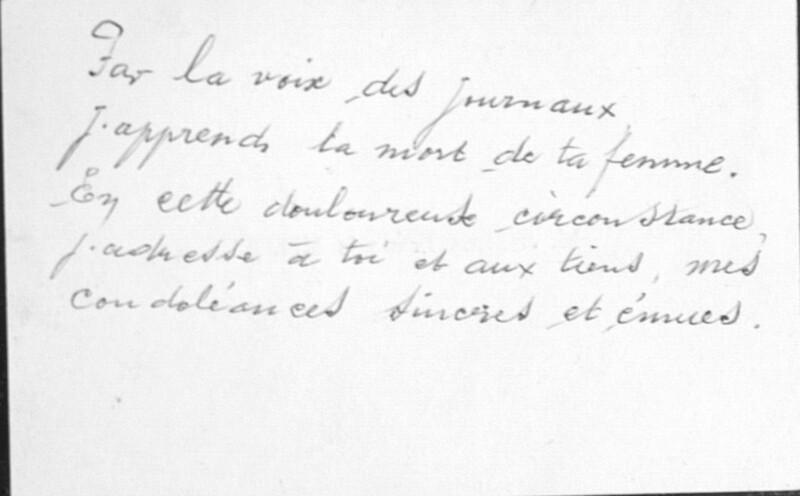 Par la voix des journaux,
j'apprends la mort de ta femme.
En cette douloureuse circonstance,
j'adresse à toi et aux tiens, mes
condoléances sincères et émues.